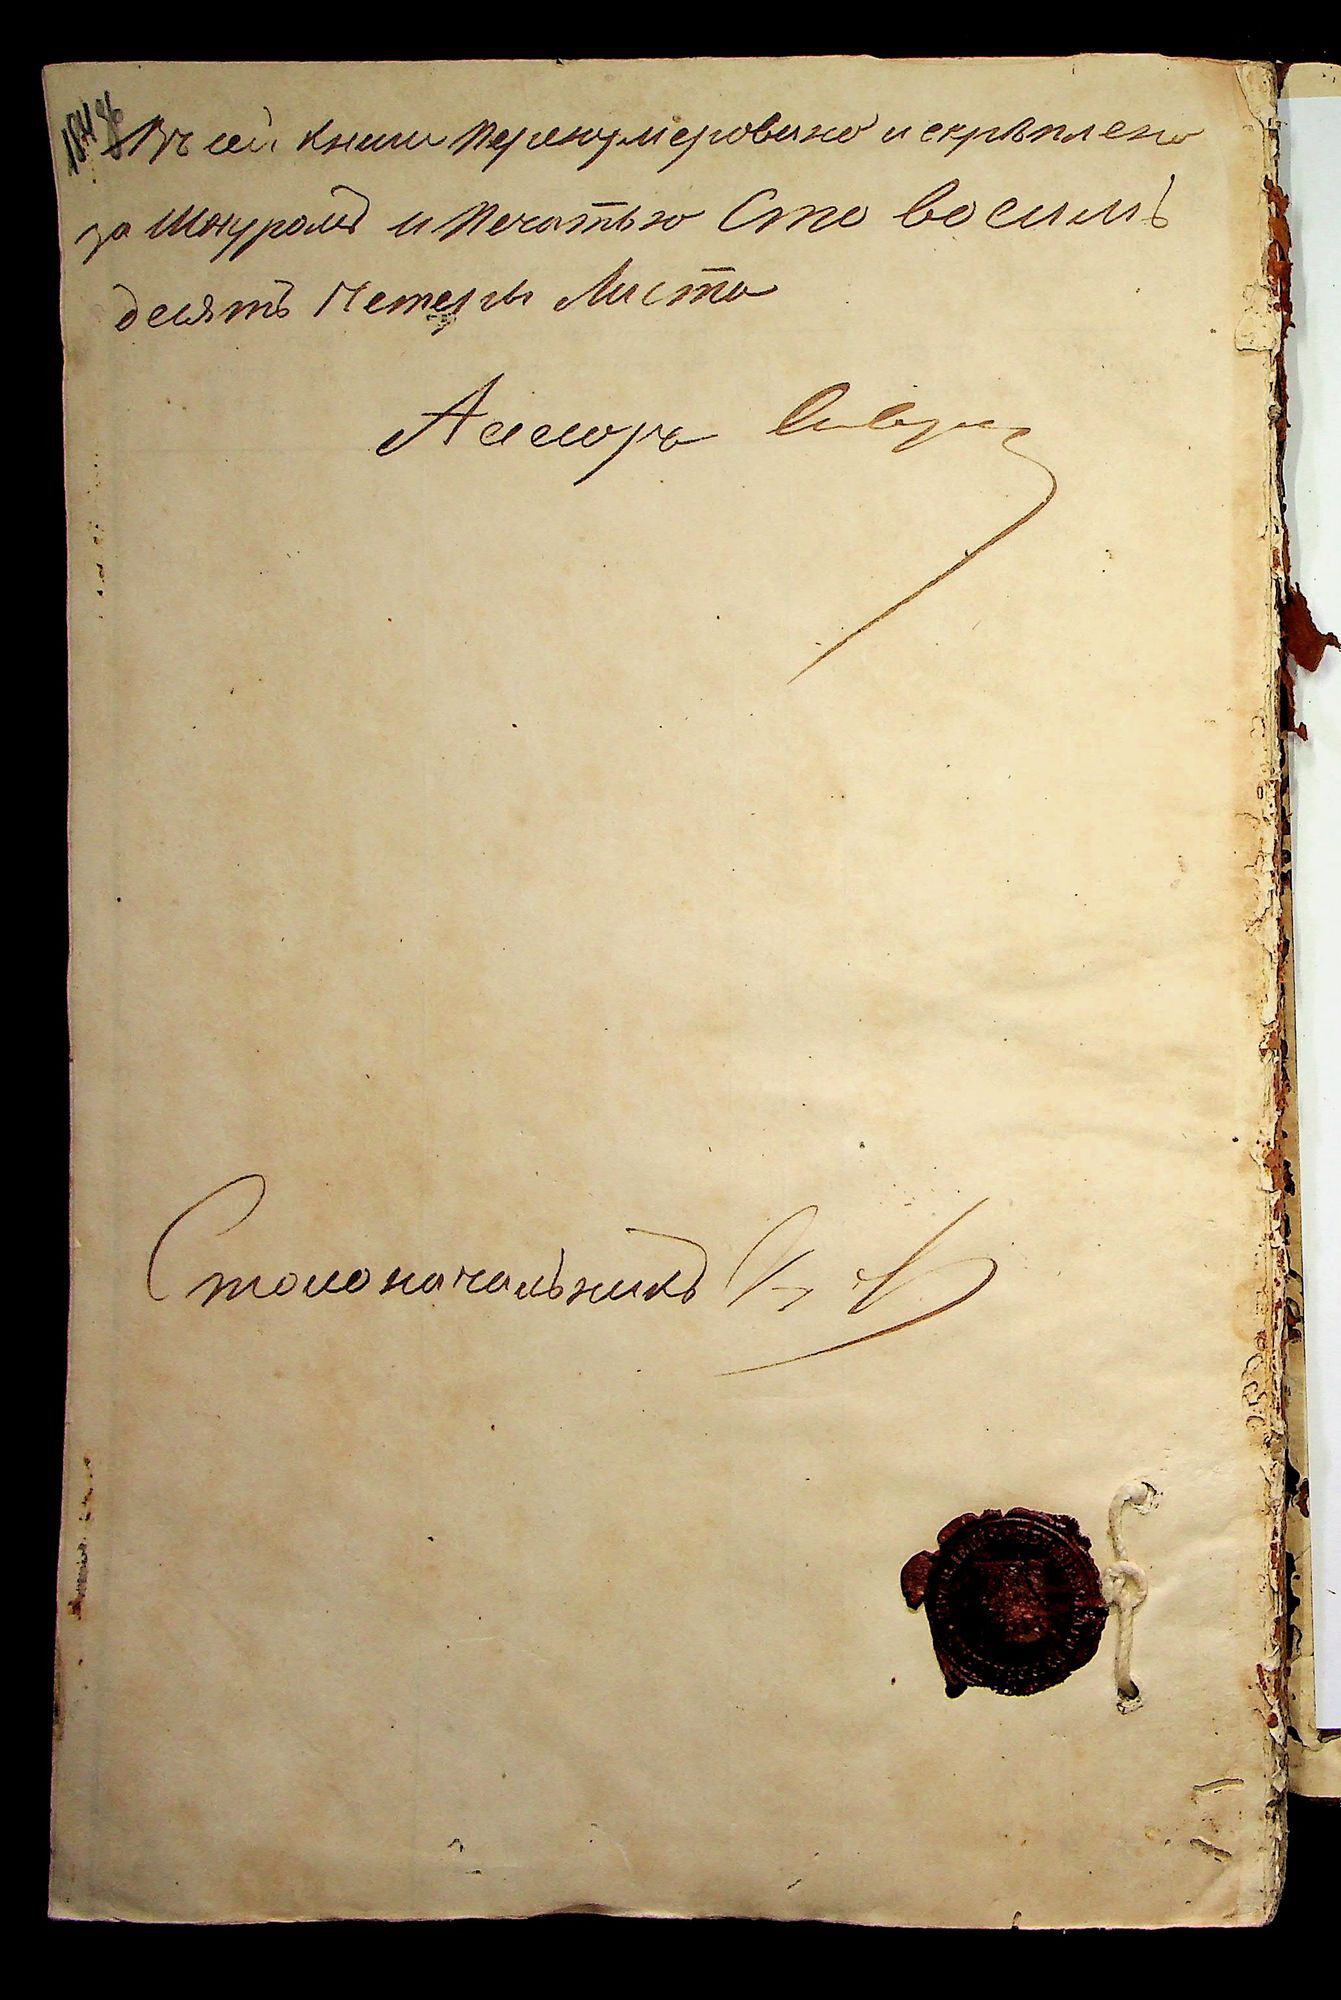 184 об
Въ сей книги Перенумеровано и скрѣплено
за Шнуромъ и Печатью Сто восемь
десятъ Четеры Листа
Асесоръ
Столоначальникъ